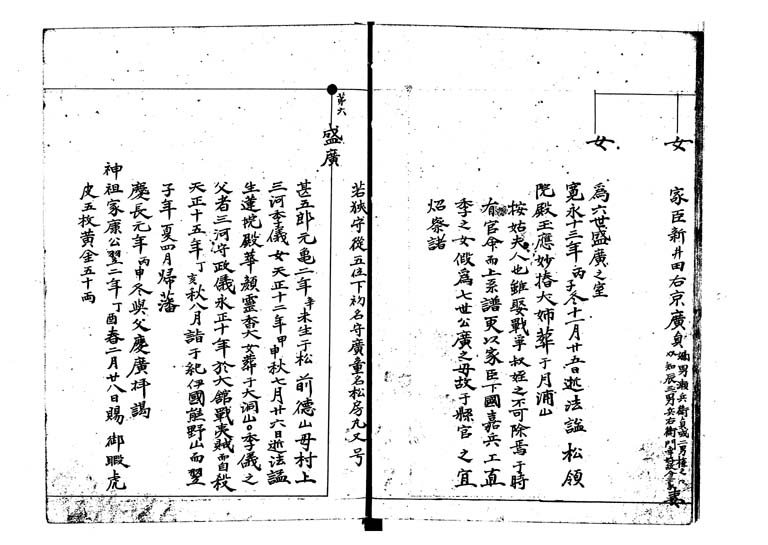 女
家臣新井田右京廣貞
女
為六世盛廣之室
寛永十三年丙子冬十一月廿五日逝法謚 松領
院殿玉應妙椿大姉葬于月浦山
按姑夫人也雖娶戰畢叔姪之不可除焉于時
有官命而上系譜更以家臣下國嘉兵工直
季之女假為七世公廣之母故于縣官 之宜
炤察諸
第六
盛廣
若狹守從五位下初名守廣童名松房丸又号
甚五郎元亀二年辛未生于松前德山母村上
三河季儀女天正十二年甲申秋七月廿六日逝法謚
生蓮院殿華顏靈香大女葬于大洞山季儀之
父者三河守政儀永正十年於大舘戰夷賊而自殺
天正十五年丁亥秋八月詣于紀伊國熊野山而翌
子年夏四月歸藩
慶長元年丙申冬與父慶廣拝謁
神祖家康公翌二年丁酉春二月廿八日賜 御暇虎
皮五枚黄金五十両